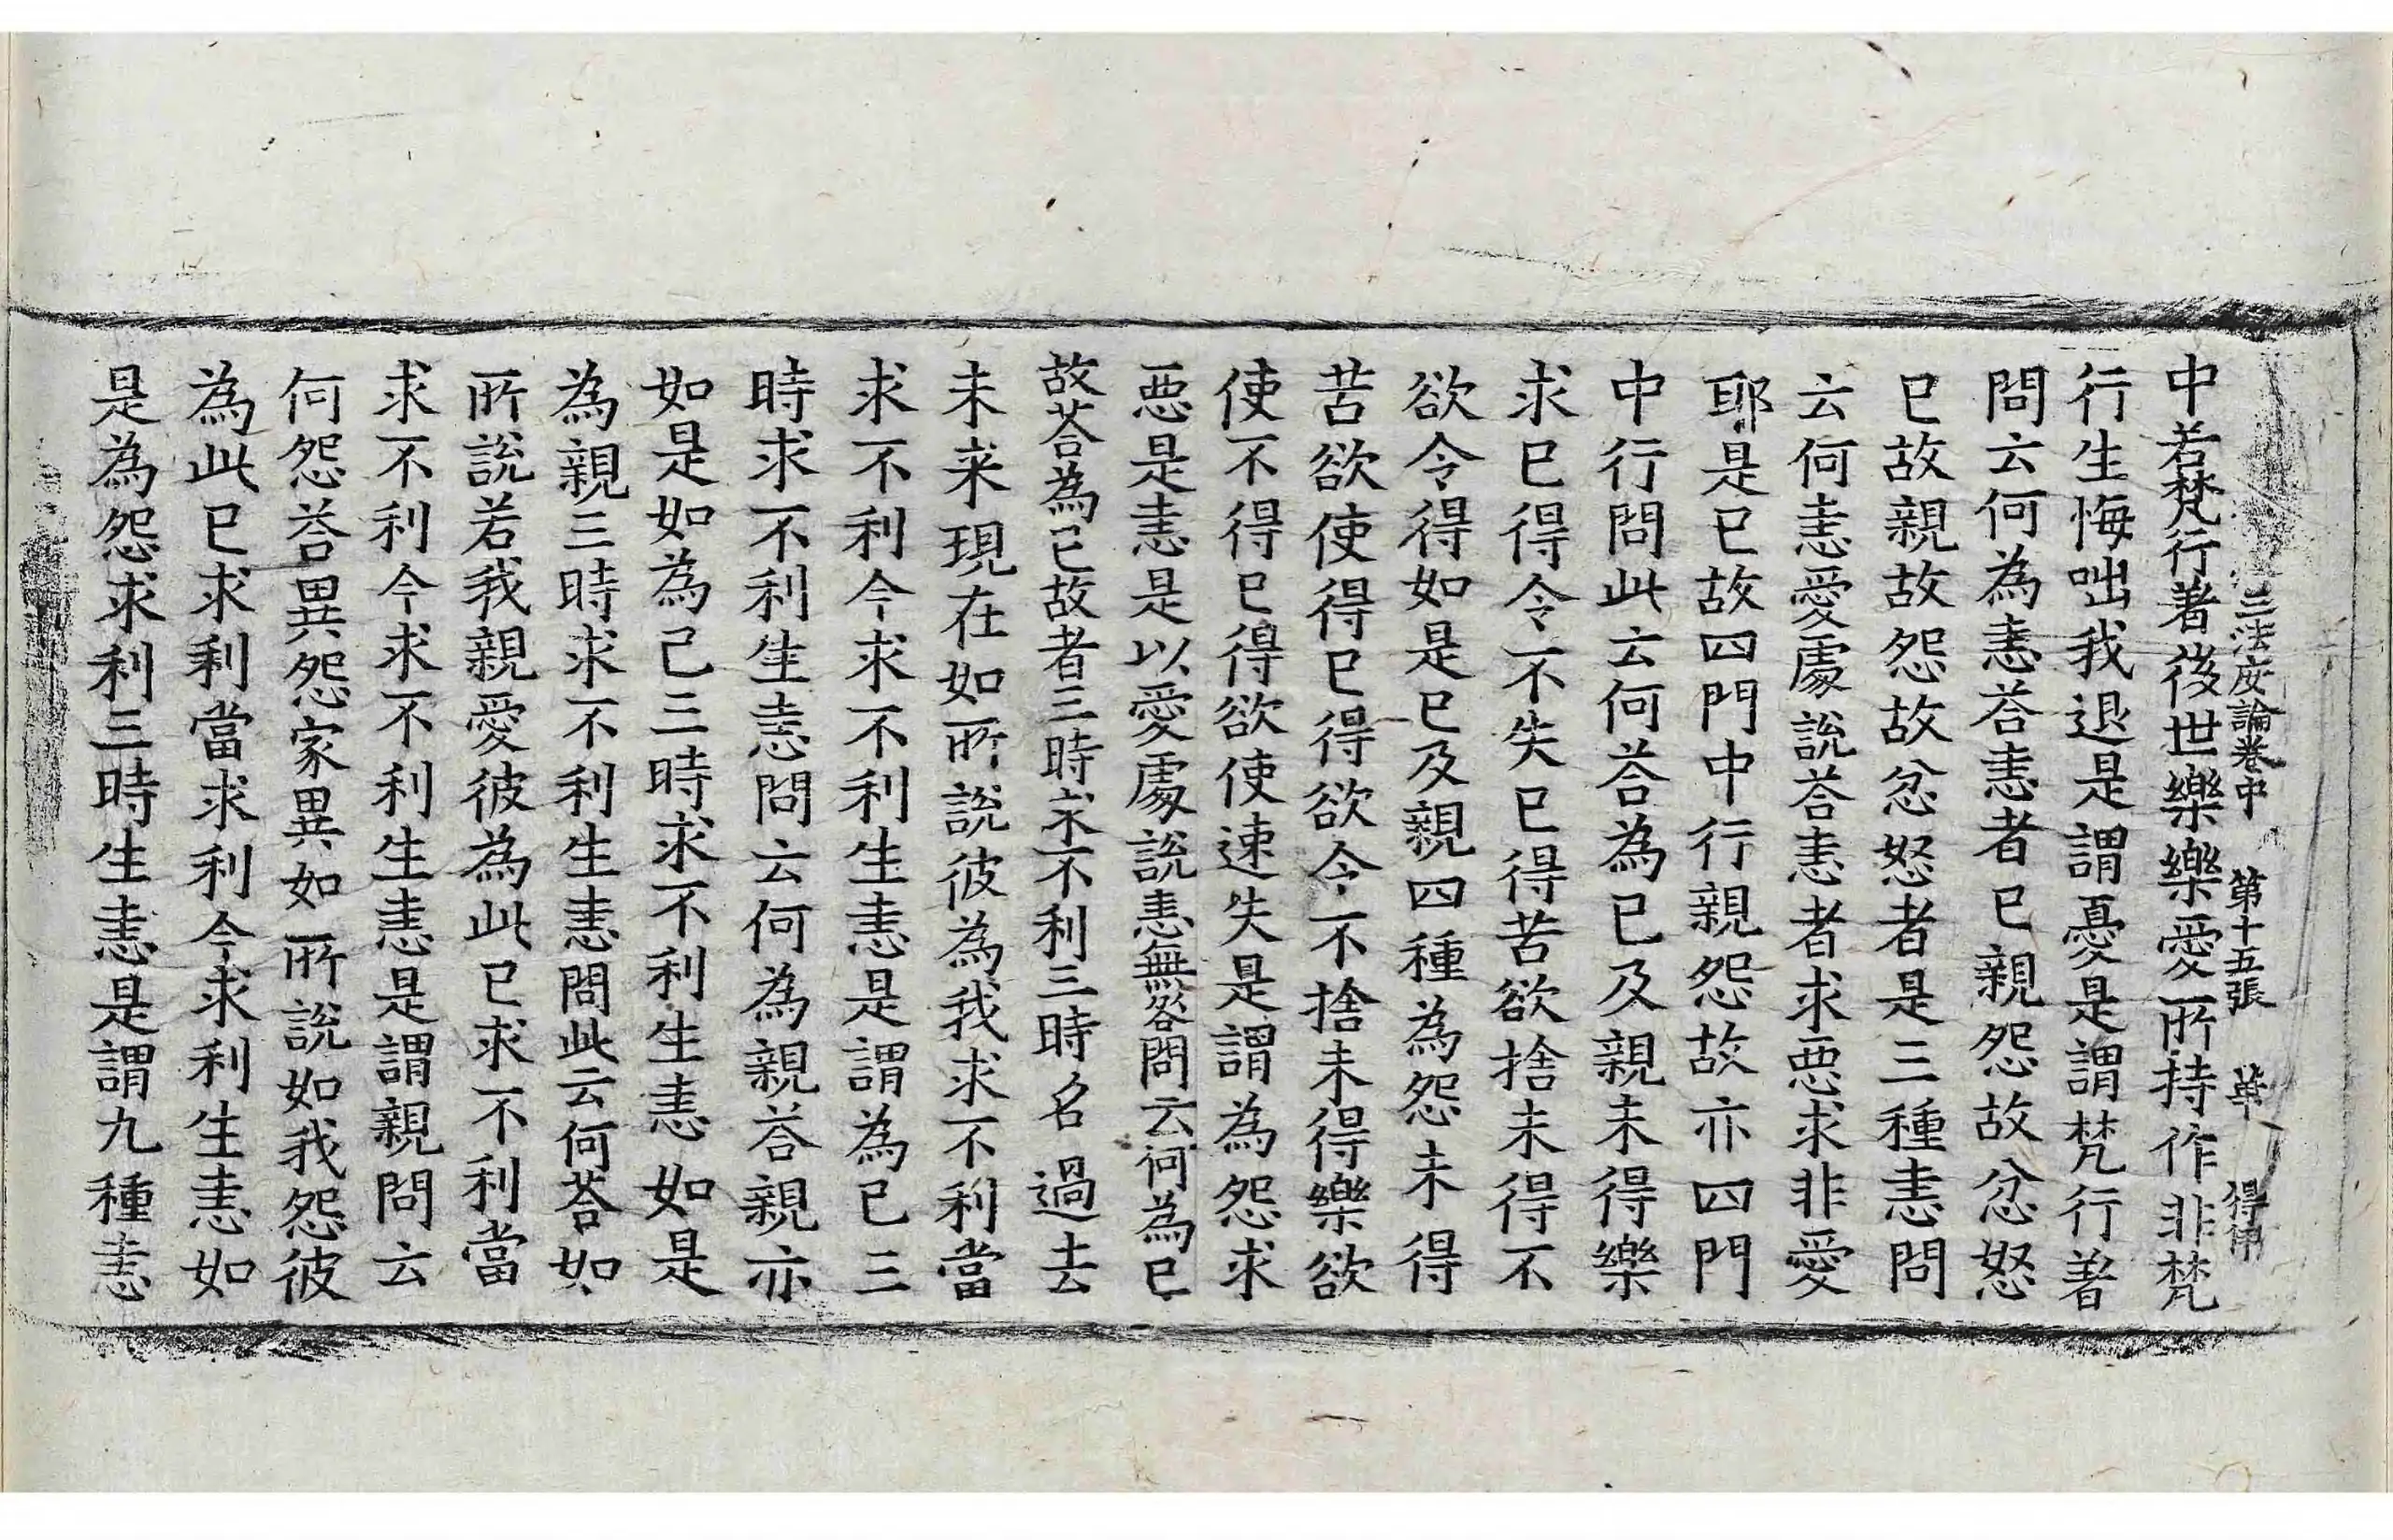 三法度論卷中 第十五張 華 得
中若梵行著後世樂樂愛所持作非梵
行生悔咄我退是謂憂是謂梵行著
問云何為恚荅恚者已親怨故忿怒
已故親故怨故忿怒者是三種恚問
云何恚愛處說荅恚者求惡求非愛
耶是已故四門中行親怨故亦四門
中行問此云何荅為已及親未得樂
求已得令不失已得苦欲捨未得不
欲令得如是已及親四種為怨未得
苦欲使得已得欲令不捨未得樂欲
使不得已得欲使速失是謂為怨求
惡是恚是以愛處說恚無咎問云何為已
故荅為已故者三時求不利三時名過去
未来現在如所說彼為我求不利當
求不利今求不利生恚是謂為已三
時求不利生恚問云何為親荅親亦
如是如為己三時求不利生恚如是
為親三時求不利生恚問此云何荅如
所說若我親愛彼為此已求不利當
求不利今求不利生恚是謂親問云
何怨荅異怨家異如所說如我怨彼
為此已求利當求利今求利生恚如
是為怨求利三時生恚是謂九種恚